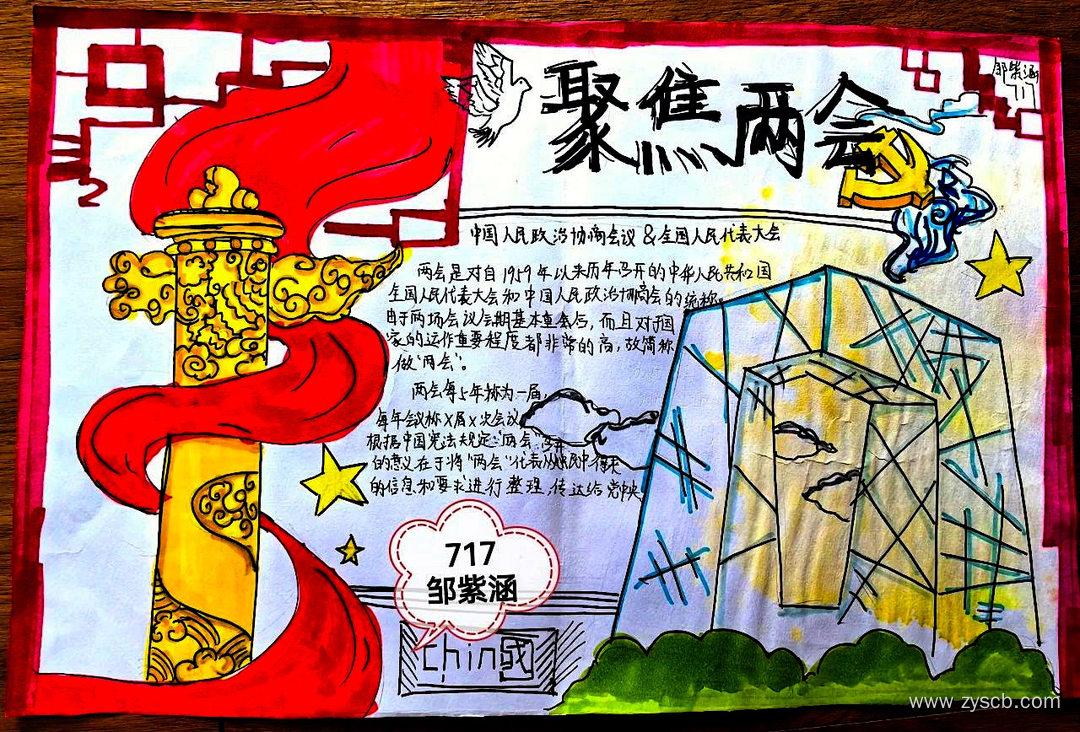 聚焦两会
邹紫涵
717
中国人民政治协商会议 & 全国人民代表大会
两会是对自1959年以来历年召开的中华人民共和国
全国人民代表大会和中国人民政治协商会的统称。
由于两场会议会期基本重合,而且对于国
家的运作重要程度都非常的高,故简称
做"两会"。
两会每5年称为一届,
每年会议称X届X次会议
根据中国宪法规定:"两会"
的意义在于将"两会"代表从人民中得来
的信息和要求进行整理,传达给党中央
717
邹紫涵
chin国
www.zyscb.com